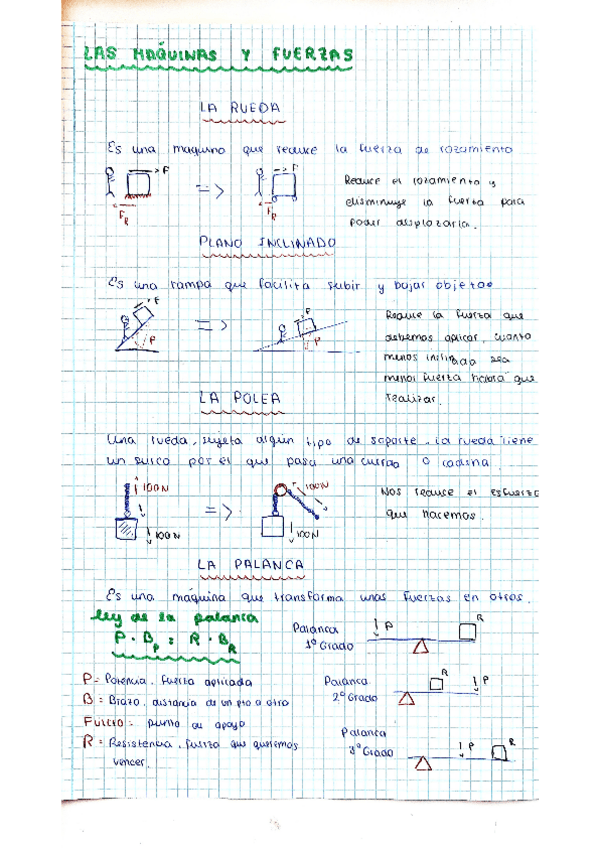 LAS MÁQUINAS Y FUERZAS
LA RUEDA
Es una maquina que reduce la fuerza de rozamiento
F
F
FR
FR
=>
Reduce el rozamiento y
disminuye la fuerza para
poder desplazarla.
PLANO INCLINADO
Es una rampa que facilita subir y bajar objetos
F
P
=>
F
P
Reduce la fuerza que
debemos aplicar, cuanto
menos inclinado sea
menor fuerza habrá que
realizar.
LA POLEA
Una rueda, sujeta algún tipo de soporte. La rueda tiene
un surco por el que pasa una cuerda o cadena
100N
100N
=>
100N
100N
Nos reduce el esfuerzo
que hacemos.
LA PALANCA
Es una máquina que transforma unas fuerzas en otras.
ley de la palanca
P · BP = R · BR
P = Potencia, fuerza aplicada
B = Brazo, distancia de un pto a otro
Fulcro = punto de apoyo
R = Resistencia, fuerza que queremos
vencer.
Palanca
1º Grado
P
R
Palanca
2º Grado
R
P
Palanca
3º Grado
P
R